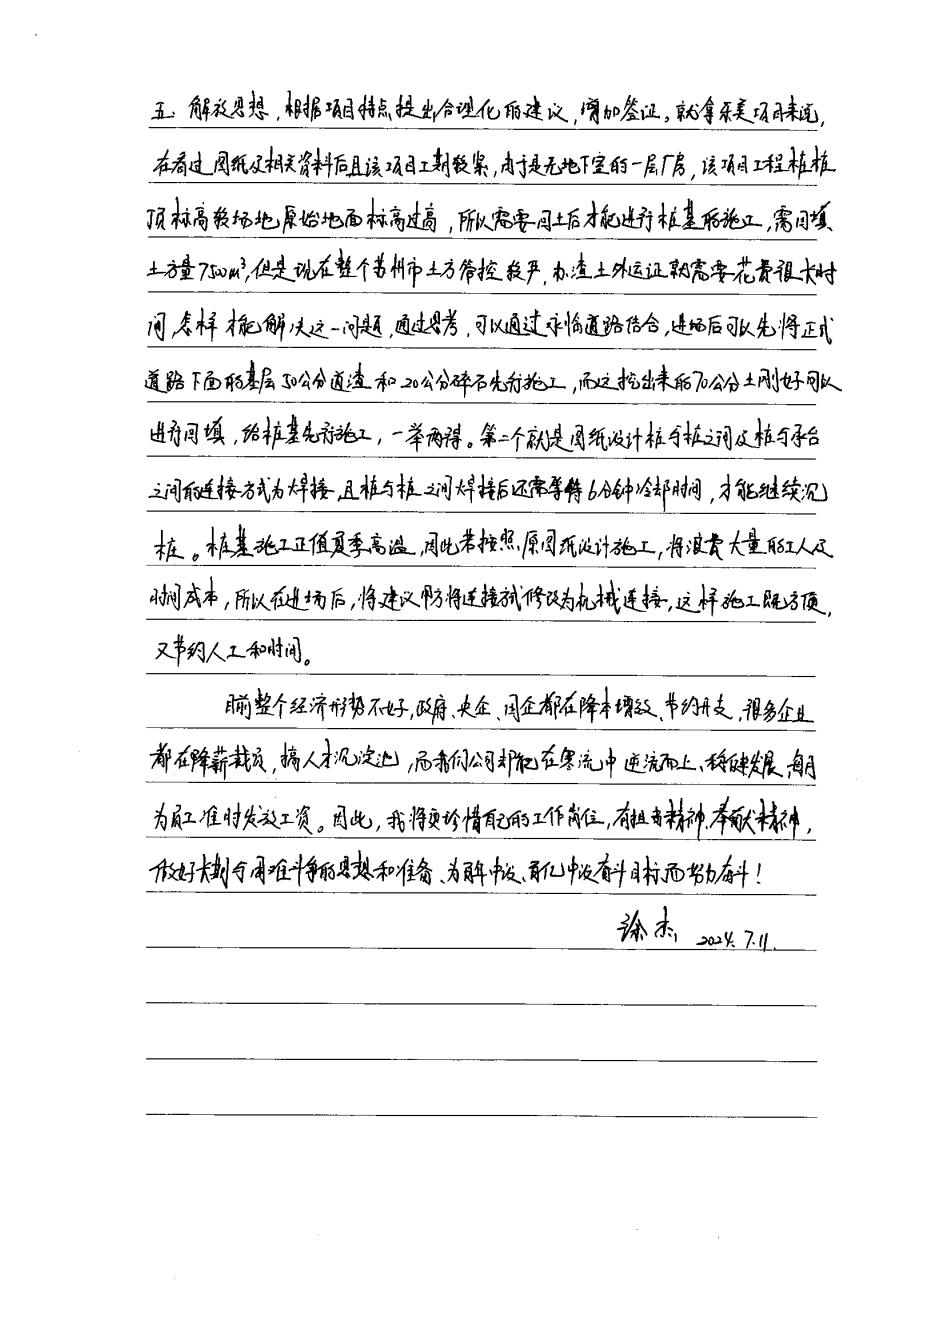 五、解放思想,根据项目特点提出合理化的建议,增加签证。就拿乐美项目来说,
在看过图纸及相关资料后且该项目工期较紧,由于是无地下室的一层厂房,该项目工程桩桩
顶标高较场地原始地面标高过高,所以需要回土后才能进行桩基的施工,需回填
土方量7500m³,但是现在整个苏州市土方管控较严,办渣土外运证就需要花费很长时
间,怎样才能解决这一问题,通过思考,可以通过永临道路结合,进场后可以先将正式
道路下面的基层50公分道渣和20公分碎石先行施工,而这挖出来的70公分土刚好可以
进行回填,给桩基先行施工,一举两得。第二个就是图纸设计桩与桩之间及桩与承台
之间的连接方式为焊接,且桩与桩之间焊接后还需等待6分钟冷却时间,才能继续沉
桩。桩基施工正值夏季高温,因此若按照原图纸设计施工,将浪费大量的工人及
时间成本,所以在进场后,将建议甲方将连接方式修改为机械连接,这样施工既方便,
又节约人工和时间。
目前整个经济形势不好,政府、央企、国企都在降本增效、节约开支,很多企业
都在降薪裁员,搞人才沉淀池,而我们公司却能在寒流中逆流而上、稳健发展,每月
为员工准时发放工资。因此,我将更珍惜自己的工作岗位,有担当精神、奉献精神,
做好长期与困难斗争的思想和准备、为百年中设、百亿中设奋斗目标而努力奋斗!
徐杰 2024.7.11.